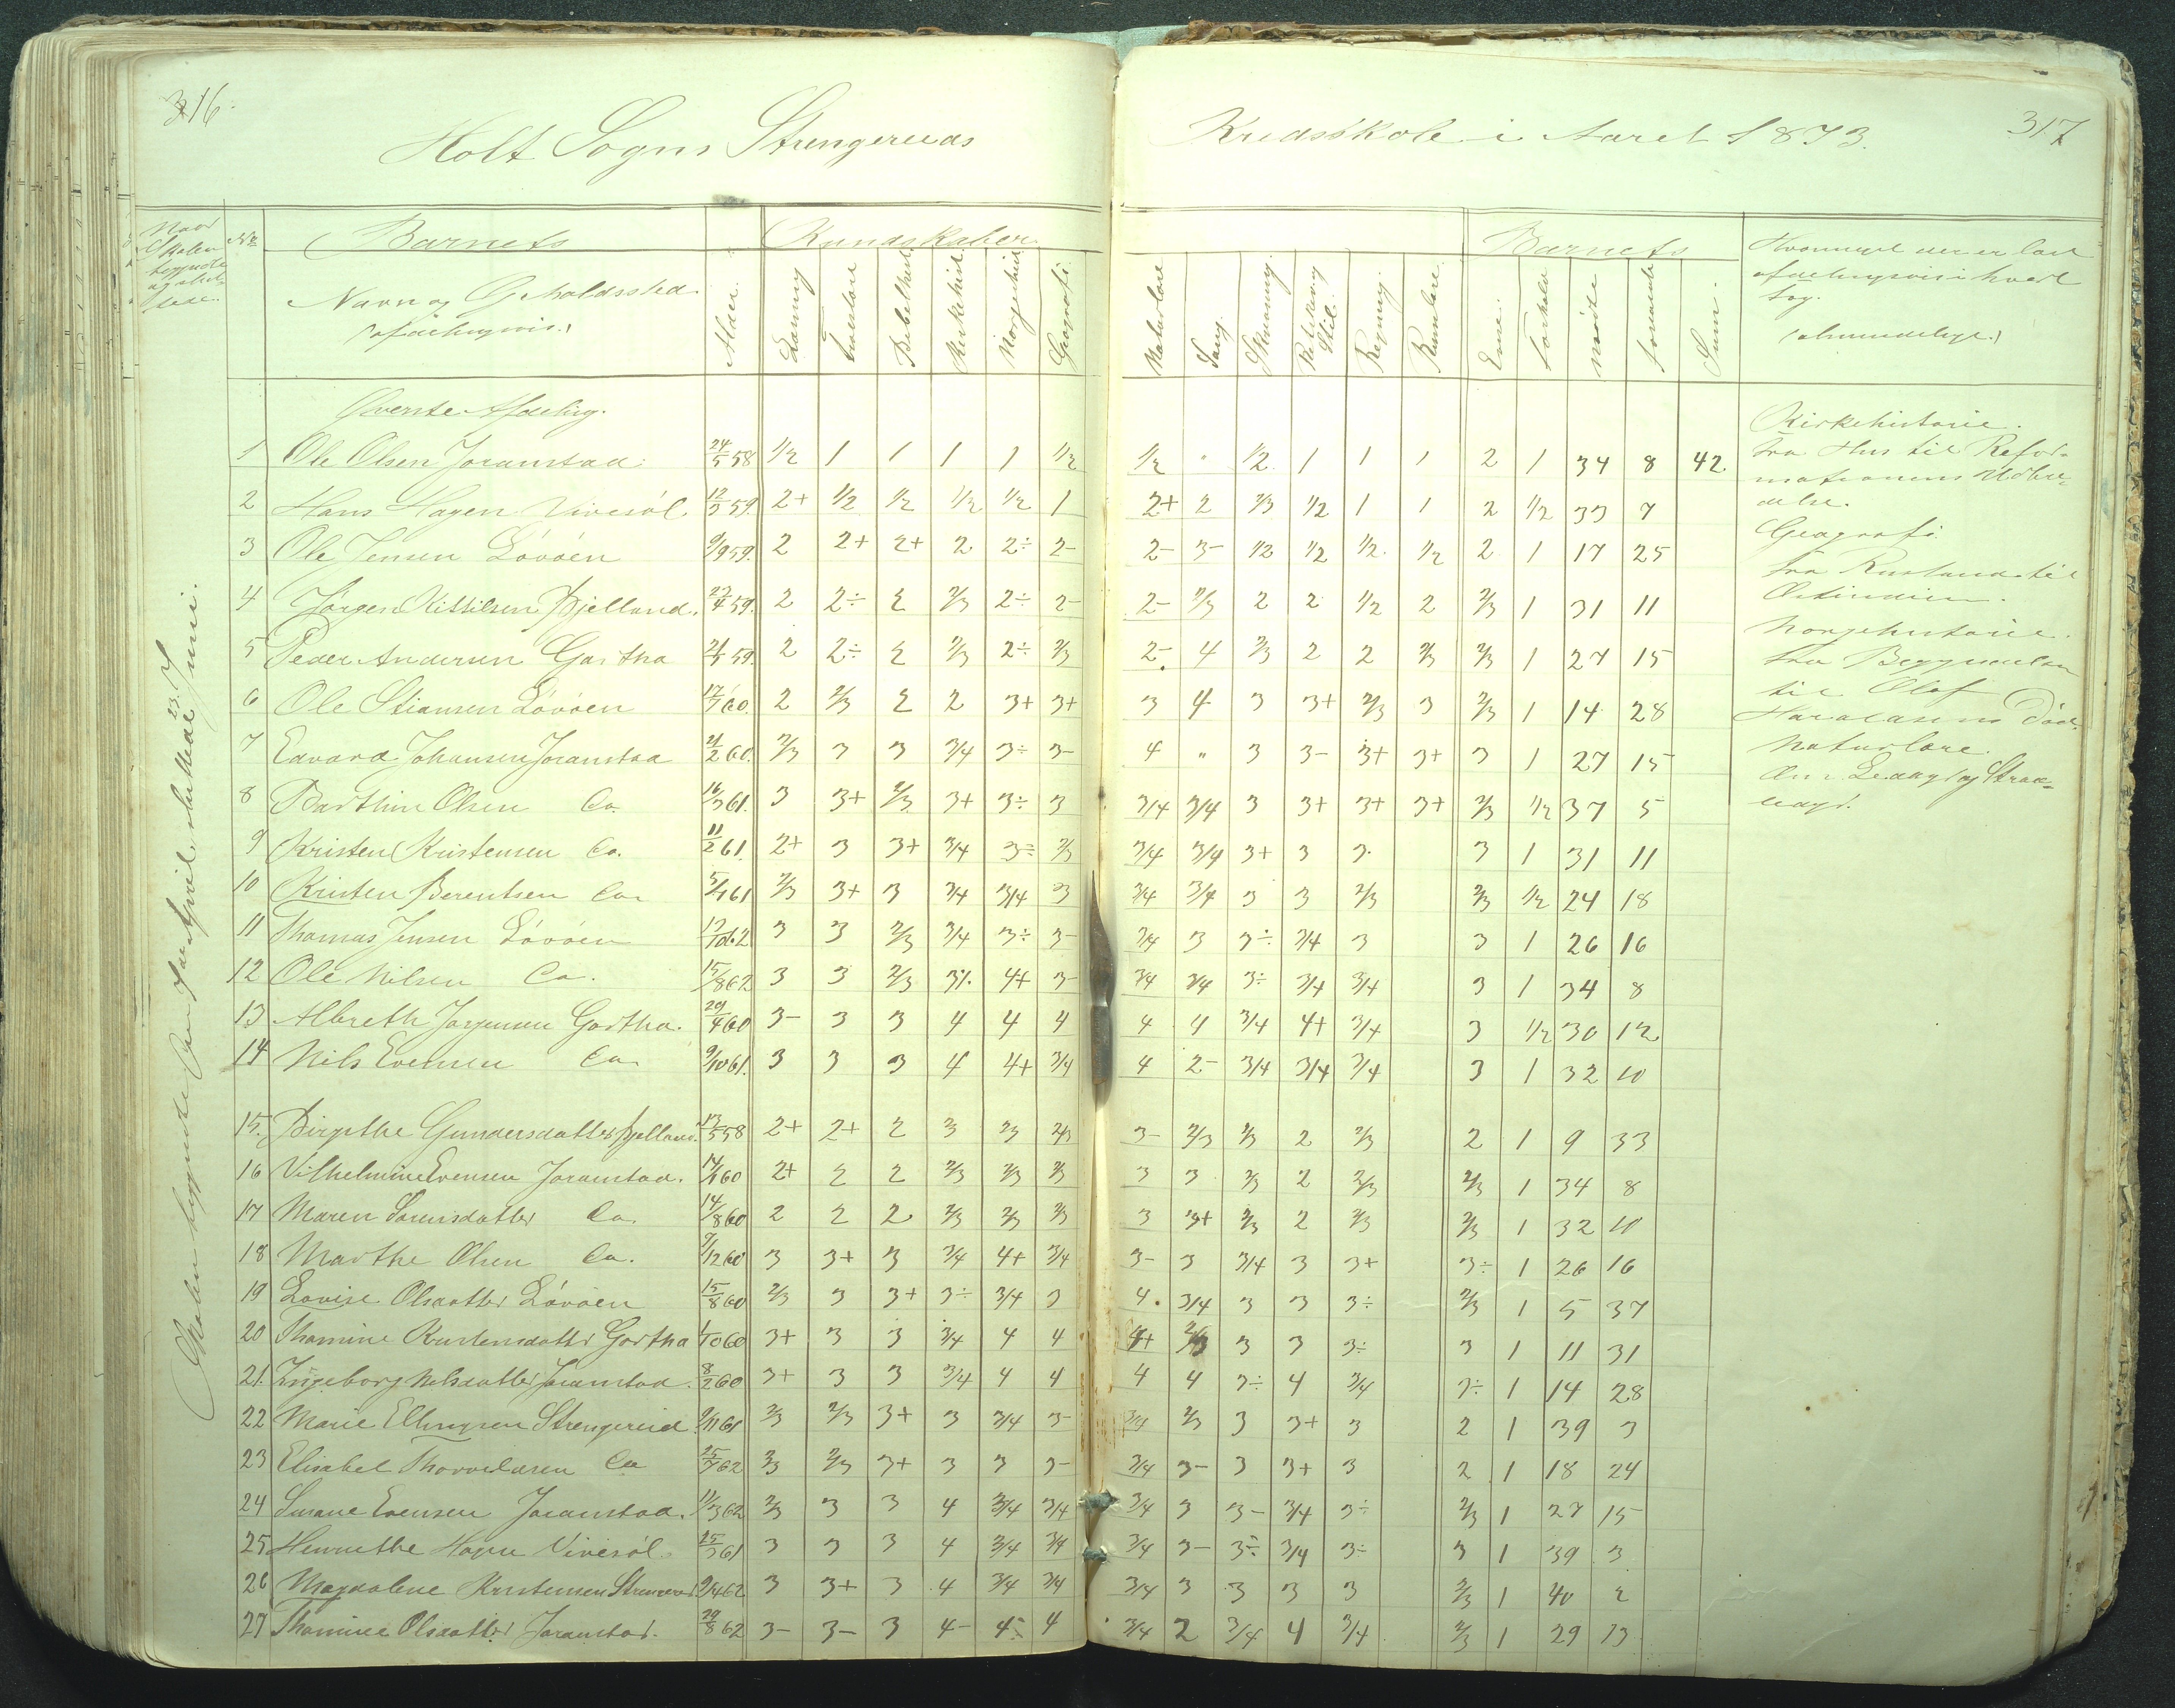 316.
Holt Sogns Strengereids
Kredsskole i Aaret 1873.
317
Naar Skolen begyndte og sluttede.
No
Barnets
Kundskaber
Barnets
Navn og Opholdssted
(afdelingsvis.)
Alder. Læsning Troeslære Bibelhist. Kirkehist. Norgeshist. Geografi.
Naturlære Sang. Skrivning. Retskrivning Stil. Regning. Evne. Forhold mødte forsømte Sum.
Hvormeget der er læst afdelingsvis i hvert Fag.
(almindelige.)
Skolen begyndte den 7de April, sluttede 23. Juni.
Øverste Afdeling.
1 Ole Olsen Joranstad. 24/5 58 1/2 1 1 1 1 1/2 1/2 " 1/2 1 1 1 2 1 34 8 42
2 Hans Hagen Vivesøl. 12/3 59. 2+ 1/2 1/2 1/2 1/2 1 2+ 2 2/3 1/2 1 1 2 1/2 33 7
3 Ole Jensen Løvøen 9/9 59. 2 2+ 2+ 2 2÷ 2- 2- 3- 1/2 1/2 1/2 1/2 2 1 17 25
4 Jørgen Kittilsen Bjelland. 22/4 59. 2 2÷ 2 2/3 2÷ 2- 2- 2/3 2 2 1/2 2 2/3 1 31 11
5 Peder Andersen Gartha 59. 2 2÷ 2 2/3 2÷ 2/3 2- 4 2/3 2 2 2/3 2/3 1 27 15
6 Ole Stiansen Løvøen 17/7 60. 2 2/3 2 2 3+ 3+ 3 4 3 3+ 2/3 3 2/3 1 14 28
7 Edvard Johansen Joranstad 21/2 60. 2/3 3 3 3/4 3÷ 3- 4 " 3 3- 3+ 3+ 3 1 27 15
8 Barthin Olsen Do. 16/3 61. 3 3+ 2/3 3+ 3÷ 3 3/4 3/4 3 3+ 3+ 3+ 2/3 1/2 37 5
9 Kristen Kristensen Do. 11/2 61. 2+ 3 3+ 3/4 3÷ 2/3 3/4 3/4 3+ 3 3. 3 1 31 11
10 Kristen Berentsen Do. 61 2/3 3+ 3 3/4 3/4 3 3/4 3/4 3 3 2/3 2/3 1/2 24 18
11 Thomas Jensen Løvøen 3 3 2/3 3/4 3÷ 3- 3/4 3 3÷ 3/4 3 3 1 26 16
12 Ole Nilsen Do. 15/8 62 3 3 2/3 3÷ 4+ 3- 3/4 3/4 3÷ 3/4 3/4 3 1 34 8
13 Albreth Jørgensen Gartha. 29/4 60 3- 3 3 4 4 4 4 4 3/4 4+ 3/4 3 1/2 30 12
14 Nils Evensen Do. 9/10 61. 3 3 3 4 4+ 3/4 4 2- 3/4 3/4 3/4 3 1 32 10
15. Birgithe Gundersdatter Bjelland. 13/5 58 2+ 2+ 2 3 2/3 2/3 3- 2/3 2/3 2 2/3 2 1 9 33
16 Vilhelmine Evensen Joranstad. 60 2+ 2 2 2/3 2/3 2/3 3 3 2/3 2 2/3 2/3 1 34 8
17 Maren Sørensdatter Do. 14/8 60 2 2 2 2/3 2/3 2/3 3 3+ 2/3 2 2/3 2/3 1 32 10
18 Marthe Olsen Do. 9/12 60 3 3+ 3 3/4 4+ 3/4 3- 3 3/4 3 3+ 3÷ 1 26 16
19 Lovise Olsdatter Løvøen 15/8 60 2/3 3 3+ 3÷ 3/4 3 4. 3/4 3 3 3÷ 2/3 1 5 37
20 Thomine Kristensdatter Gartha 1/10 60 3+ 3 3 3/4 4 4 4+ 3 3 3÷ 3 1 11 31
21. Ingeborg Nilsdatter Joranstad. 8/2 60 3+ 3 3 3/4 4 4 4 4 3÷ 4 3/4 3÷ 1 14 28
22 Marie Ellingsen Strengereid 9/11 61 2/3 2/3 3+ 3 3/4 3- 3/4 2/3 3 3+ 3 2 1 39 3
23 Elisabet Thorvaldsen Do 25/7 62 2/3 2/3 3+ 3 3 3- 3/4 3- 3 3+ 3 2 1 18 24
24 Susane Evensen Joranstad. 11/3 62 2/3 3 3 4 3/4 3/4 3/4 3 3- 3/4 3÷ 2/3 1 27 15
25 Henriethe Hagen Vivesøl. 25/3 61 3 3 3 4 3/4 3/4 3/4 3- 3÷ 3/4 3÷ 3 1 39 3
26 Magdalene Kristensen Strengereid 9/4 62 3 3+ 3 4 3/4 3/4 3/4 3 3 3 3 2/3 1 40 2
27 Thomine Olsdatter Joranstad. 29/8 62 3- 3- 3 4- 4÷ 4 3/4 2 3/4 4 3/4 2/3 1 29 13
Kirkehistorie.
Fra Hus til Reformationens Udbredelse.
Geografi.
Fra Rusland til
Ostindien.
Norgehistorie.
Fra Begyndelsen
til Olaf
Haraldsens Død.
Naturlære.